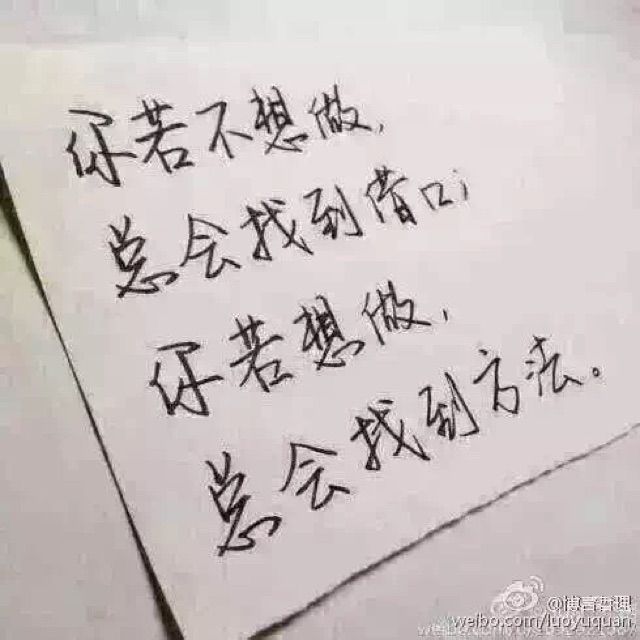 你若不想做,
总会找到借口;
你若想做,
总会找到方法。
weibo.com/luoyuquan